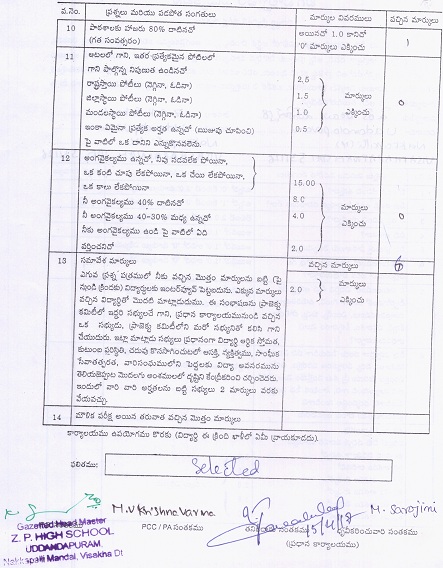 వ.నెం. ప్రశ్నలు మరియు పడపోత సంగతులు మార్కుల వివరములు వచ్చిన మార్కులు
10 పాఠశాలకు హాజరు 80% దాటినదో అయినచో 1.0 కానిదో 1
(గత సంవత్సరం) '0' మార్కులు ఎక్కించు
11 ఆటలలో గాని, ఇతర ప్రత్యేకమైన పోటీలలో
గాని పాల్గొన్న నిపుణుత ఉండినదో
రాష్ట్రస్థాయి పోటీలు (నెగ్గినా, ఓడినా) 2.5
జిల్లాస్థాయి పోటీలు (నెగ్గినా, ఓడినా) 1.5 మార్కులు 0
మండలస్థాయి పోటీలు (నెగ్గినా, ఓడినా) 1.0 ఎక్కించు
ఇంకా ఏమైనా ప్రత్యేక అర్హత ఉన్నదో (ఋజువు చూపించి) 0.5
పై వాటిలో ఒక దానిని ఎన్నుకొనవలెను.
12 అంగవైకల్యము ఉన్నదో, నీవు నడవలేక పోయినా,
ఒక కంటి చూపు లేకపోయినా, ఒక చేయి లేకపోయినా,
ఒక కాలు లేకపోయినా 15.00
నీ అంగవైకల్యము 40% దాటినదో 8.0 మార్కులు
నీ అంగవైకల్యము 40-30% మధ్య ఉన్నదో 4.0 ఎక్కించు 0
నీకు అంగవైకల్యము ఉండి పై వాటిలో ఏది
వర్తించనిదో 2.0
13 సమావేశ మార్కులు వచ్చిన మార్కులు
ఎగువ ప్రశ్న పత్రములో నీకు వచ్చిన మొత్తం మార్కులను బట్టి (పై
నుండి క్రిందకు) విద్యార్థులకు ఇంటర్వ్యూవ్ పెట్టబడును. ఎక్కువ మార్కులు 2.0 మార్కులు
వచ్చిన విద్యార్థితో మొదటి మాట్లాడుదుము. ఈ సంభాషణను ప్రాజెక్టు ఎక్కించు
కమిటీలో ఇద్దరి సభ్యులచే గాని, ప్రధాన కార్యాలయమునుండి వచ్చిన
ఒక సభ్యుడు, ప్రాజెక్టు కమిటీలోని మరో సభ్యునితో కలిసి గాని
చేయుదురు. ఇట్లా మాట్లాడు సభ్యులు ప్రధానంగా విద్యార్థి ఆర్థిక స్తోమత,
కుటుంబ పరిస్థితి, చదువు కొనసాగించుటలో ఆసక్తి, వ్యక్తిత్వము, సాంఘిక
సేవాతత్పరత, వారిసంఘములోని పెద్దలకు విద్యా అవసరమును
తెలియజెప్పుట మొదలగు అంశములలో దృష్టిని కేంద్రీకరించి చర్చించెదరు.
ఇందులో వారి వారి అర్హతలను బట్టి సభ్యులు 2 మార్కులు వరకు
వేయవచ్చు.
14 మౌళిక పరీక్ష అయిన తరువాత వచ్చిన మొత్తం మార్కులు
కార్యాలయము ఉపయోగము కొరకు (విద్యార్థి ఈ క్రింది ఖాళీలో ఏమీ వ్రాయకూడదు).
ఫలితము: Selected
M.V Krishna Varma M. Sarojini
Gazetted Head Master PCC / PA సంతకము
Z. P. HIGH SCHOOL (ప్రధాన కార్యాలయము)
UDDANDAPURAM
Nakkapalli Mandal, Visakha Dt